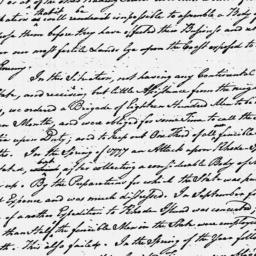 that'll be
as will render it impossible to assemble a Body of
these them before they have effected their Business and
one most fertile Lands lye upon the Coast exposed to
Enemy.
In this Situation, not having any Continental
State, and receiving but little Assistance from the neigh
we ordered a Brigade of Eighteen Hundred Men to be
Months, and were obliged for some Time to call the
upon Duty; and to keep out One third of the fencible
In the Spring of 1777 an Attack upon Rhode Isl
but after collecting a considerable Body of
up. By the Preparations for which the State was put
Expense and was much distressed. In September fo
of another Expedition to Rhode Island was concerted,
than Half the fencible Men in the State were employed
This also failed. In the Spring of the Year follo